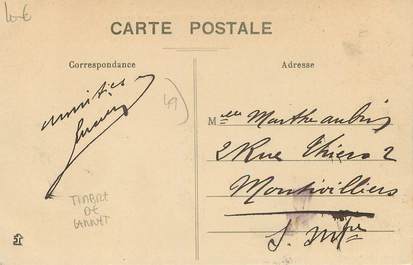 10€
CARTE POSTALE
Correspondance
Adresse
Amitiés
49
Mlle Marthe Aubin
2 Rue Thiers 2
Montivilliers
S. Infre
TIMBRE
DE
CARNET